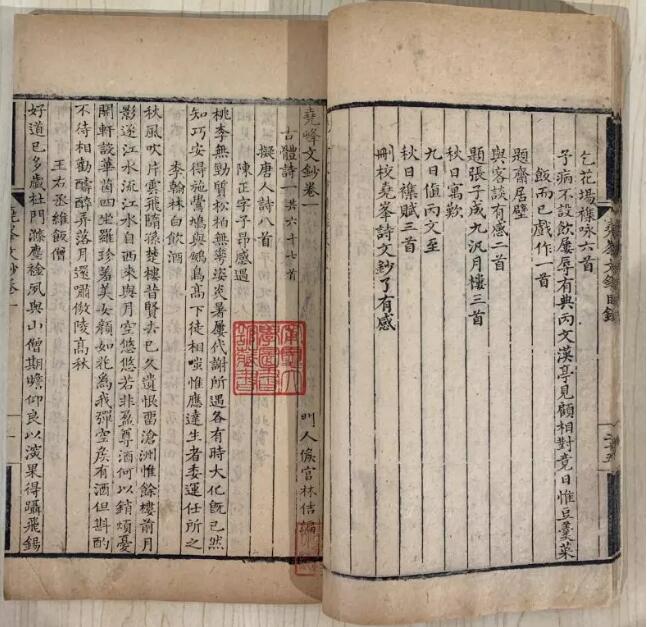 乞花場襍咏六首
子病不設飲屢辱有典丙文漢亭見顧相對竟日惟豆羹菜
飯而已戲作一首
題齋居壁
與客談有感二首
題張子成九汎月樓三首
秋日寓歎
九日值丙文至
秋日襍賦三首
刪校堯峯詩文鈔了有感
堯峰文鈔卷一
門人侯官林佶編
古體詩一共六十七首
擬唐人詩八首
陳正字子昂感遇
桃李無勁質松柏無夸姿炎暑屢代謝所遇各有時大化既已然
知巧安得施鷽鳩與鵬鳥高下徒相嗤惟應達生者委運任所之
李翰林白飲酒
秋風吹片雲飛隨孫楚樓昔賢去已久遺恨畱滄洲惟餘樓前月
影逐江水流江水自西來與月空悠悠若非盈尊酒何以銷煩憂
開軒設華茵四坐羅珍羞美女顏如花爲我彈空矦有酒但斟酌
不待相勸醻醉弄落月還嘯傲陵高秋
王右丞維飯僧
好道已多歲杜門滌塵風與山僧期瞻仰良以深果得躡飛錫
堯峯文鈔卷一